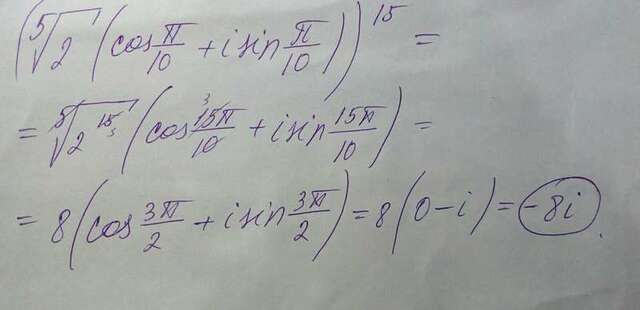 (⁵√2 (cos π/10 + i sin π/10))¹⁵ =
= ⁵√2¹⁵ ³ (cos ³ 15π/10 + i sin 15π/10) =
= 8 (cos 3π/2 + i sin 3π/2) = 8 (0 - i) = -8i.